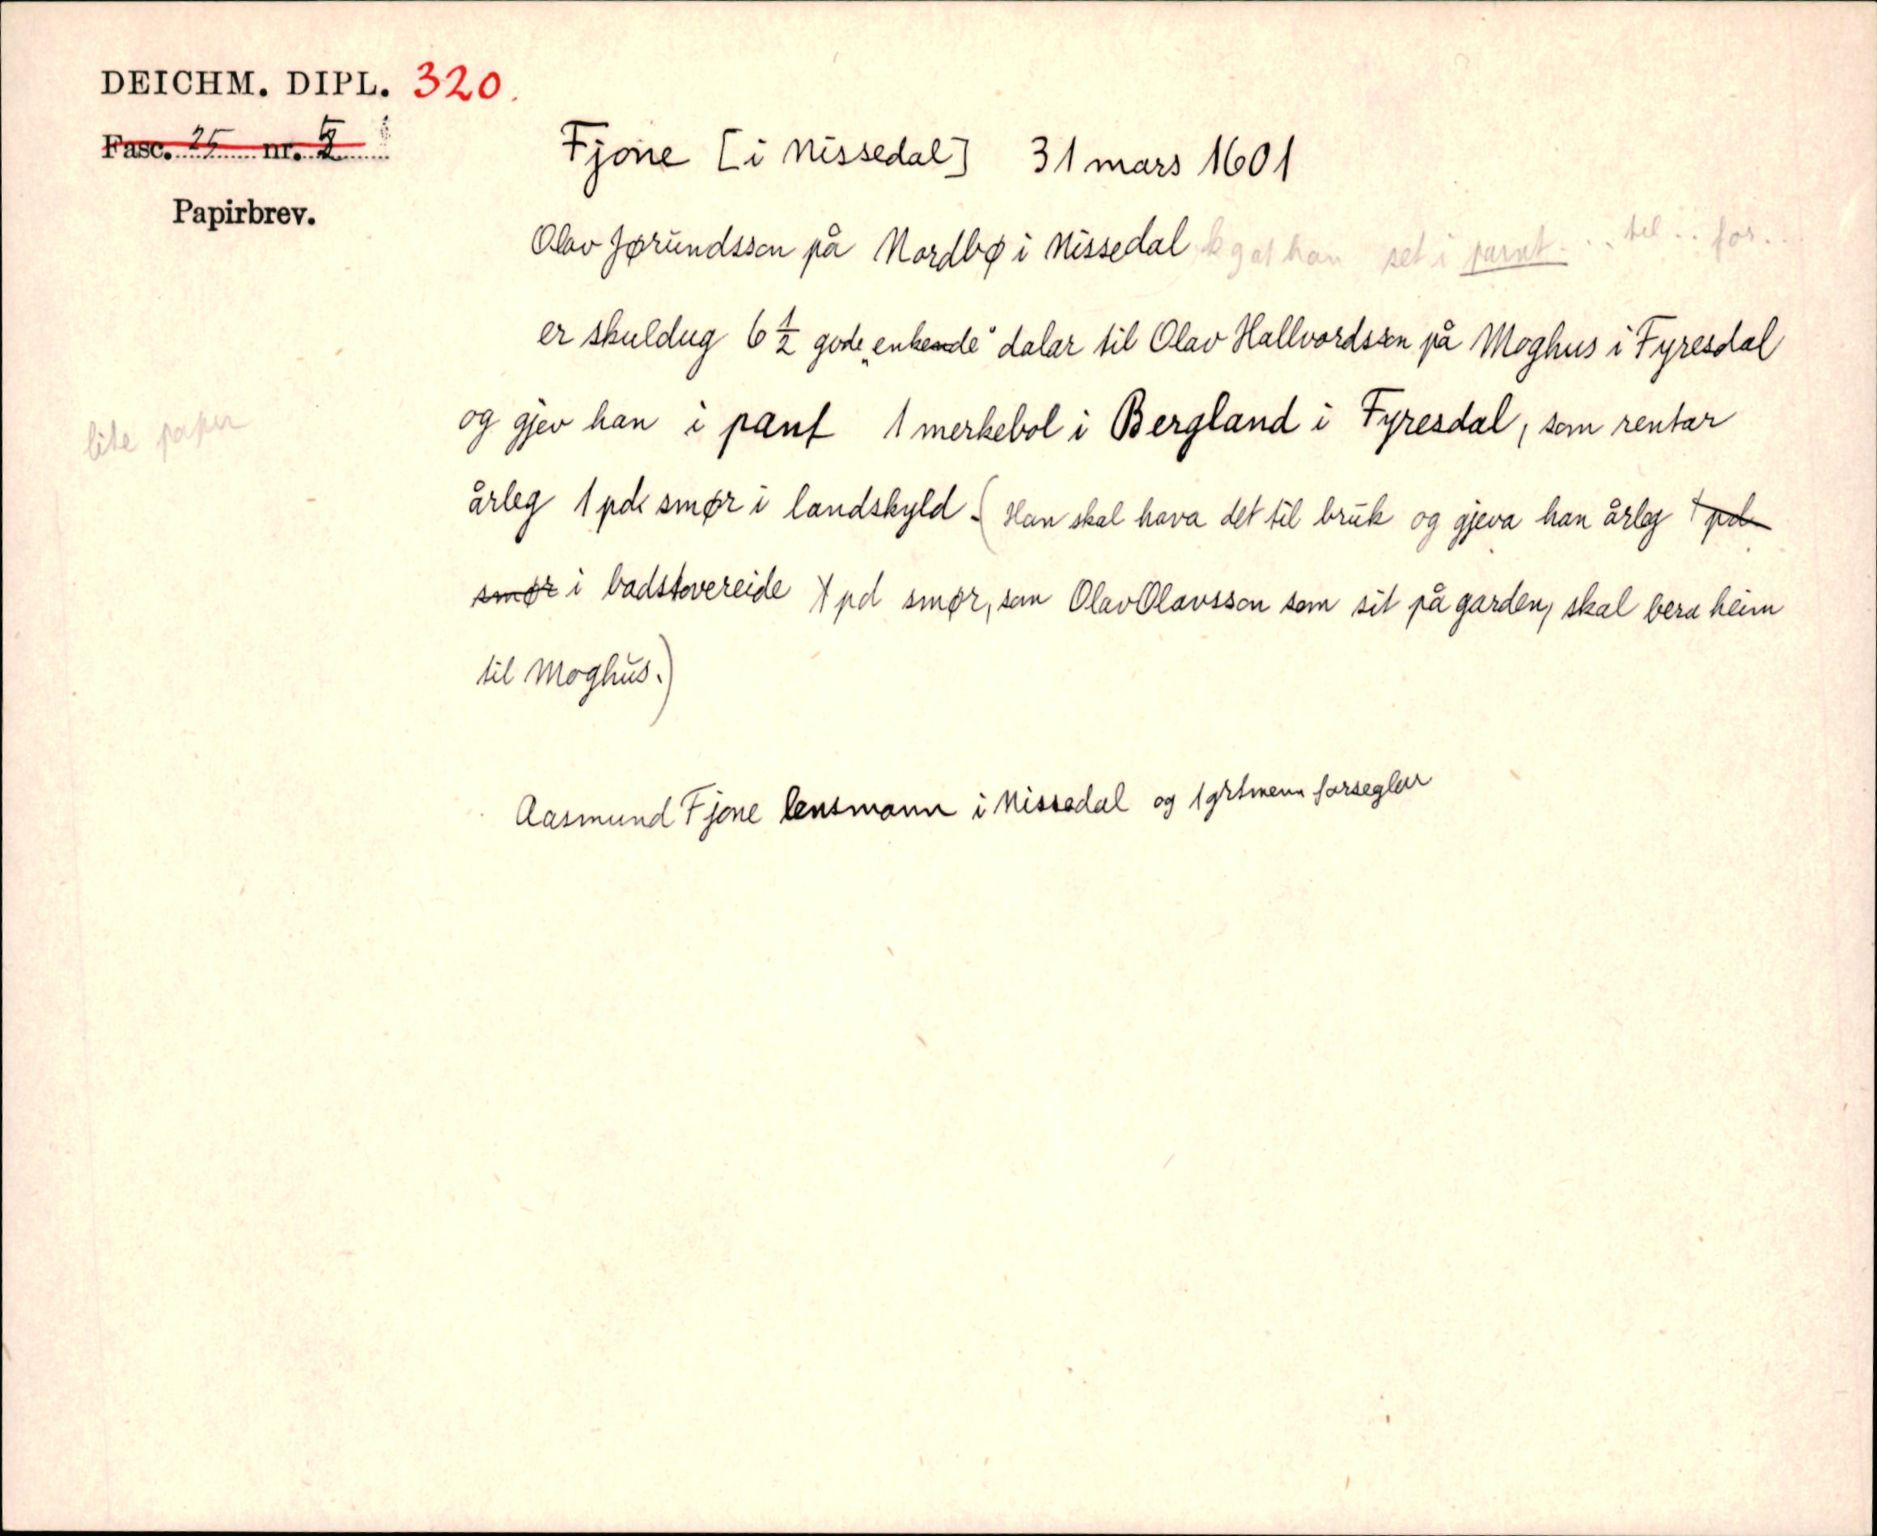 DEICHM. DIPL. 320.
Fasc. 25 nr. 5
Papirbrev.
Fjone [i Nissedal] 31 mars 1601
Olav Jørundsson på Nordbø i Nissedal kgøt han set i pant ... til .. for...
er skuldug 6 1/2 gode „enkende" dalar til Olav Hallvordsson på Moghus i Fyresdal
og gjev han i pant 1 merkebol i Bergland i Fyresdal, som rentar
lite papir
årleg 1 pd smør i landskyld. (Han skal hava det til bruk og gjeva han årleg 1 pd
smør i badstovereide 1 pd smør, som Olav Olavsson som sit på garden, skal bera heim
til Moghus.)
Aasmund Fjone lensmann i Nissedal og lgrtmenn forseglar